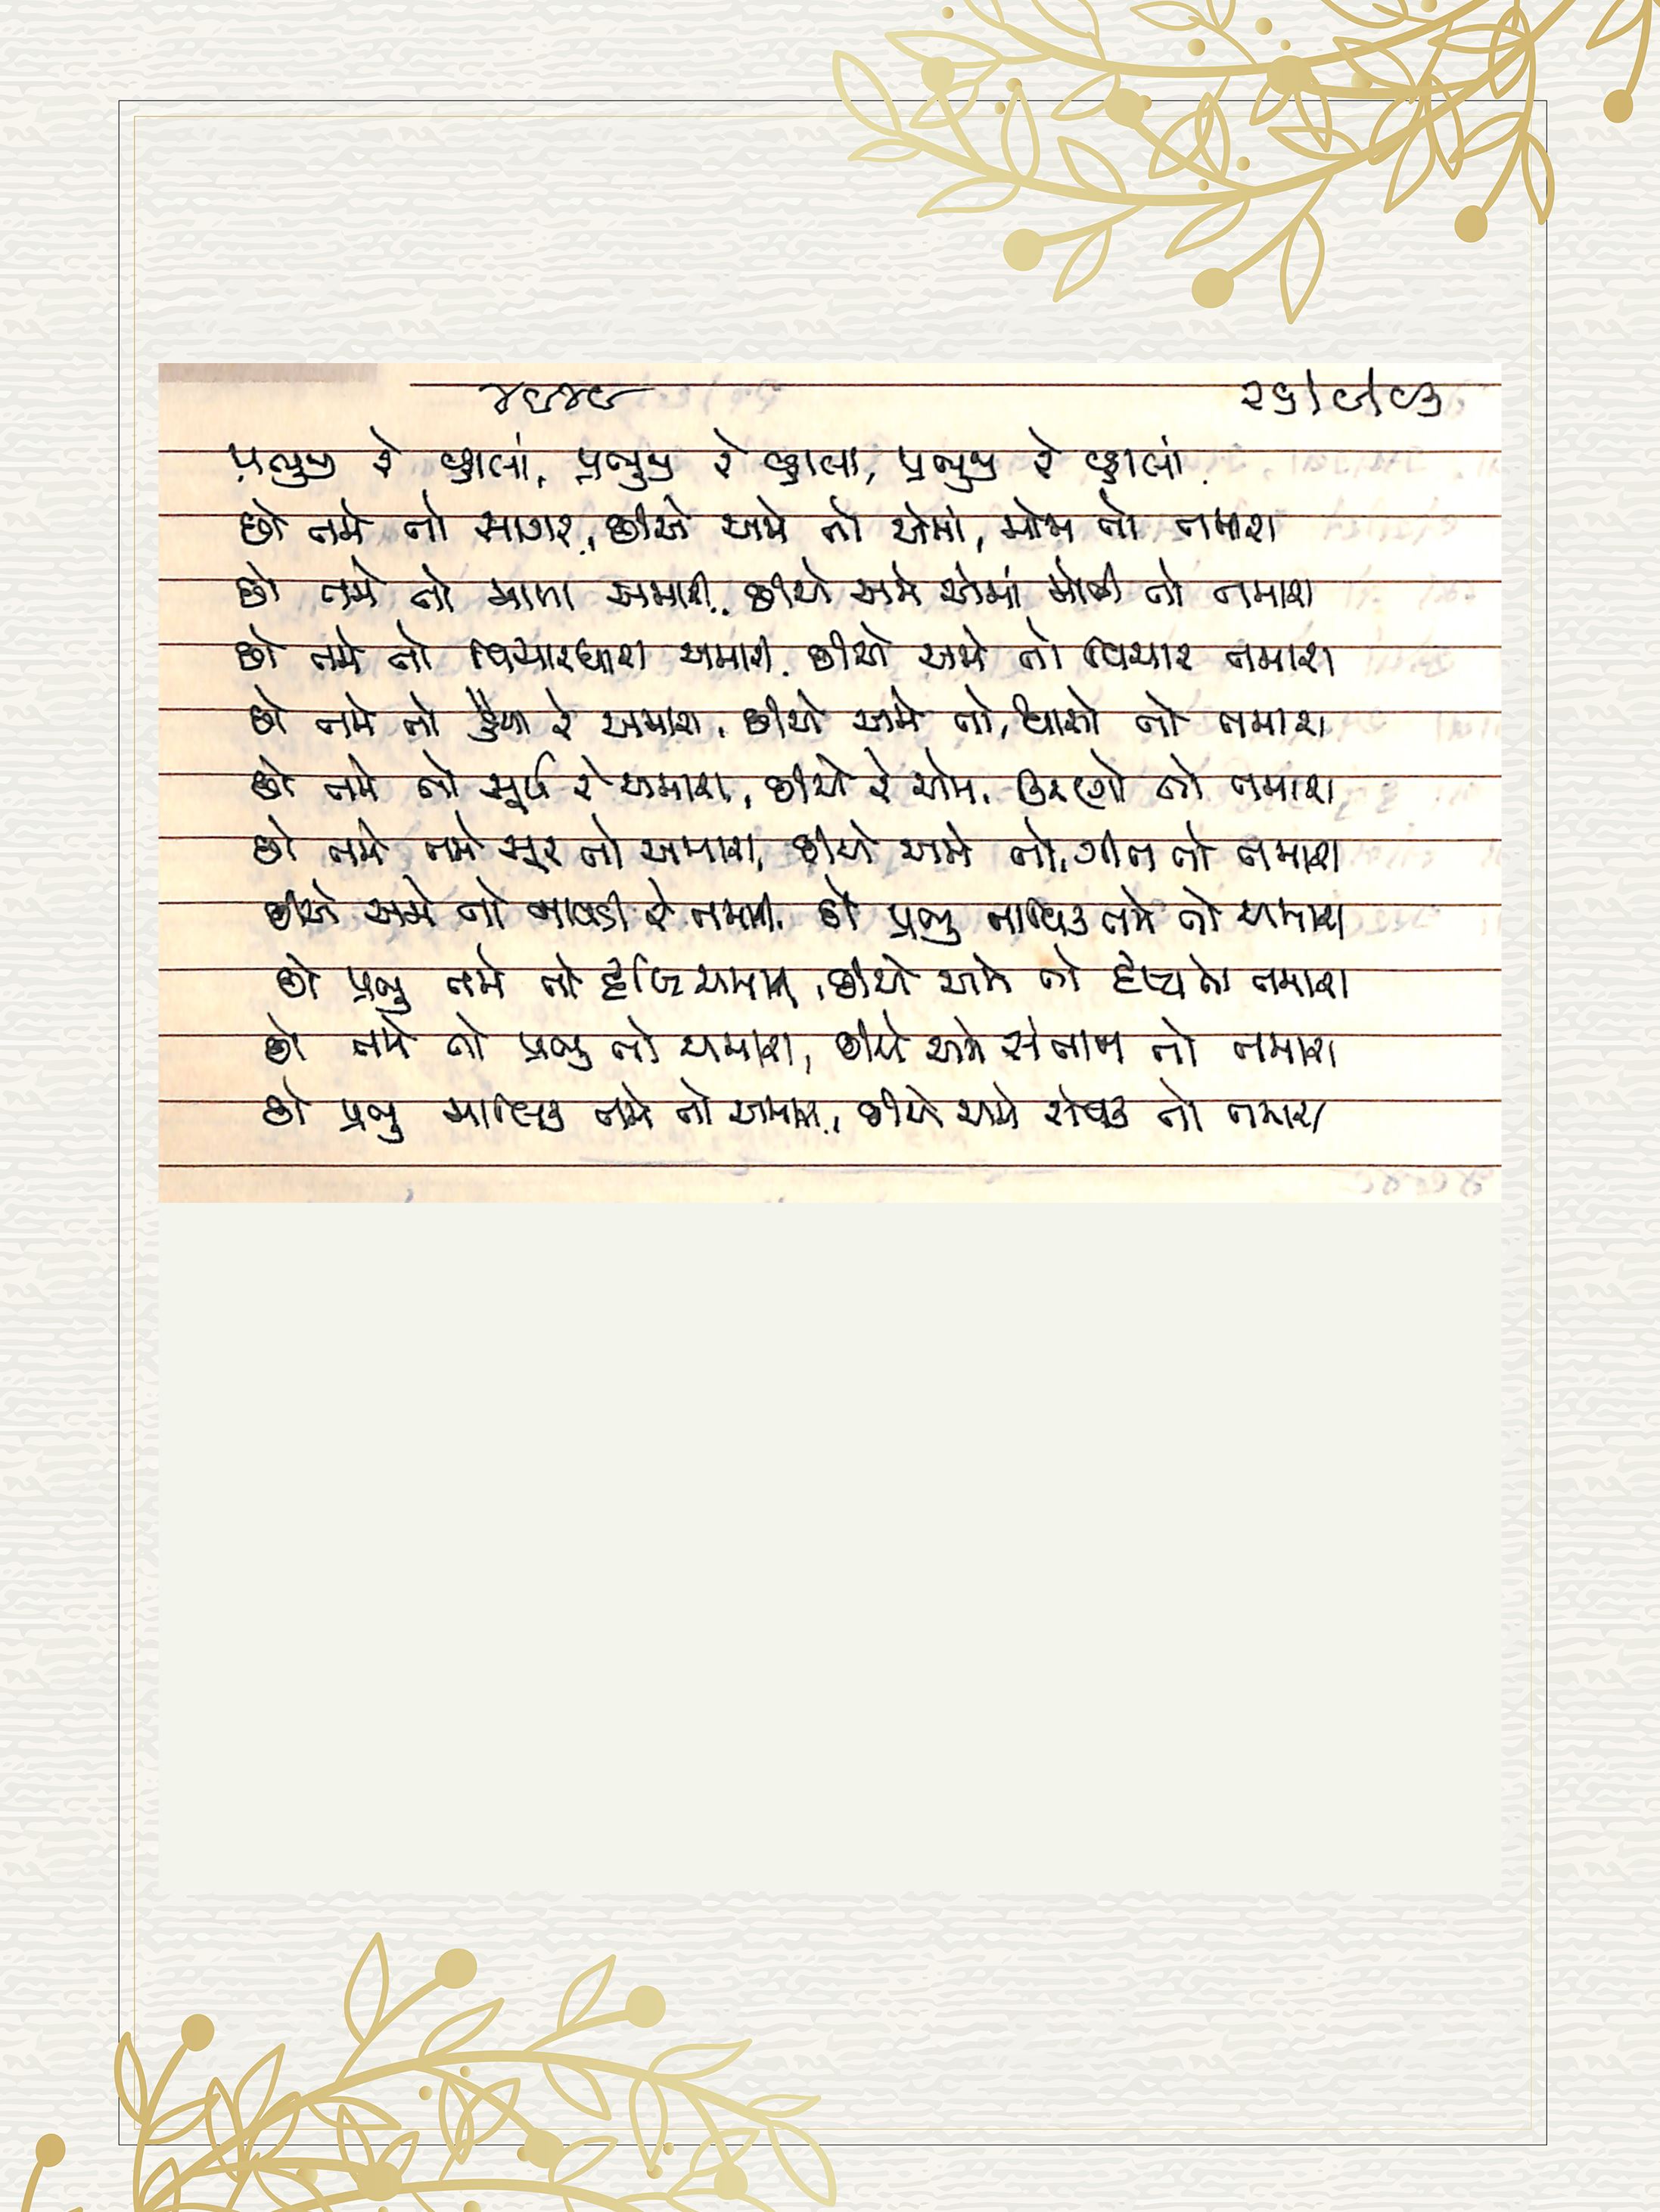 ૪૯૪૯ ૨૬/૯/૯૩
પ્રભુજી રે વ્હાલાં, પ્રભુજી રે વ્હાલા, પ્રભુજી રે વ્હાલાં
છો તમે તો સાગર, છીએ અમે તો એમાં, મોજ તો તમારા
છો તમે તો માળા અમારી, છીએ અમે એમાં મોતી તો તમારા
છો તમે તો વિચારધારા અમારી, છીએ અમે તો વિચાર તમારા
છો તમે તો હૈયા રે અમારા, છીએ અમે તો, શ્વાસો તો તમારા
છો તમે તો સૂર્ય રે અમારા, છીએ રે અમે, કિરણો તો તમારા
છો તમે તમે સૂર તો અમારા, છીએ અમે તો, ગીત તો તમારા
છીએ અમે તો નાવડી રે તમારી, છો પ્રભુ નાવિક તમે તો અમારા
છો પ્રભુ તમે તો અમારા, છીએ અમે તો તમારા
છો તમે તો પ્રભુ તો અમારા, છીએ અમે સંતાન તો તમારા
છો પ્રભુ માલિક તમે તો અમારા, છીએ અમે સેવક તો તમારા